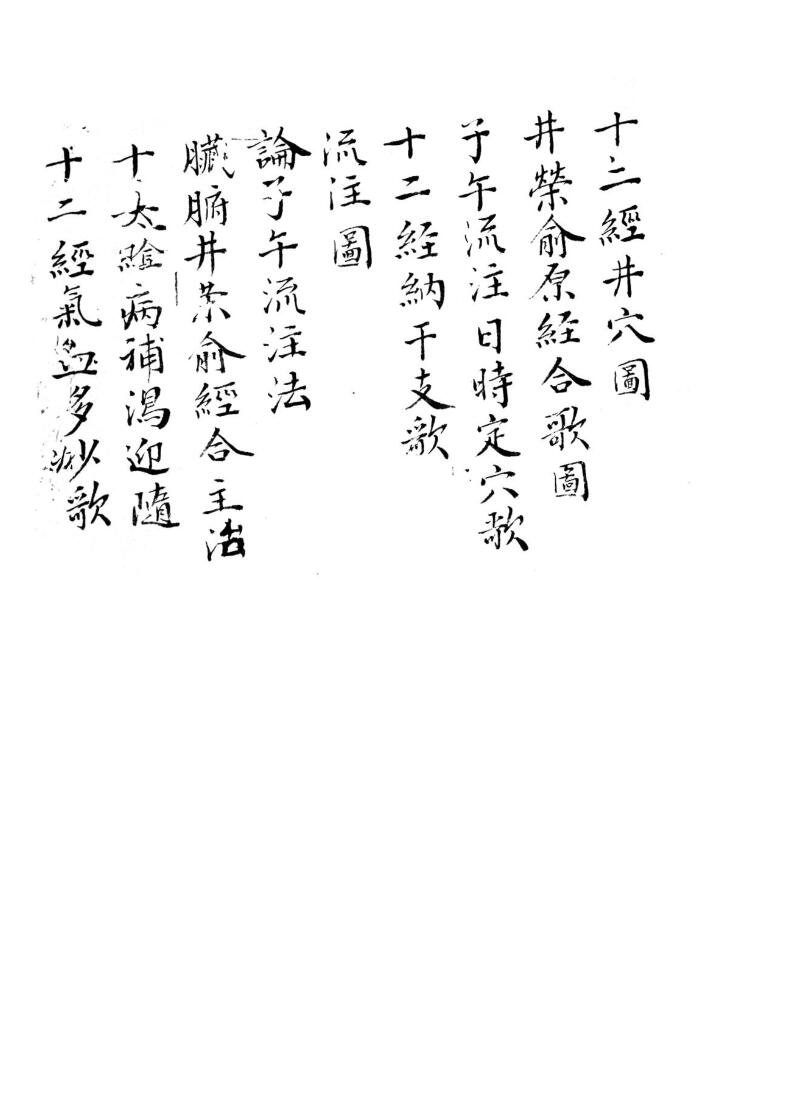 十二經井穴圖
井榮俞原経合歌圖
子午流注日時定穴歌
十二経納干支歌
流注圖
論子午流注法
臟腑井荥俞經合主治
十太病補瀉迎隨
十二經氣血多少歌